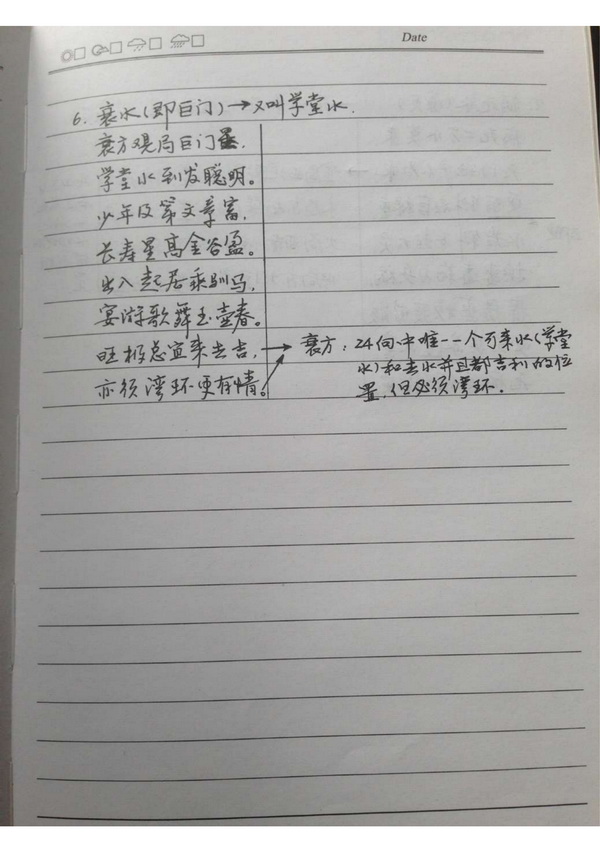 Date
6. 衰水(即巨门)→又叫学堂水.
衰方观局巨门星.
学堂水到发聪明。
少年及第文章富,
长寿星高金谷盈。
出入起居乘驷马,
宴游歌舞玉壶春。
旺极总宜来去吉, → 衰方: 24向中唯一一个可来水(学堂
水)和去水并且都吉利的位
亦须湾环更有情。
置.但必须湾环.